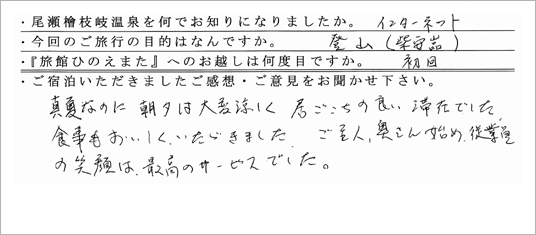 ・尾瀬檜枝岐温泉を何でお知りになりましたか。 インターネット
・今回のご旅行の目的はなんですか。 登山(柴安嵓)
・『旅館ひのえまた』へのお越しは何度目ですか。 初回
・ご宿泊いただきましたご感想・ご意見をお聞かせ下さい。
真夏なのに 朝夕は大変涼しく 居ごこちの良い 滞在でした。
食事もおいしく、いただきました。 ご主人、奥さん始め、従業員
の笑顔は、最高のサービスでした。